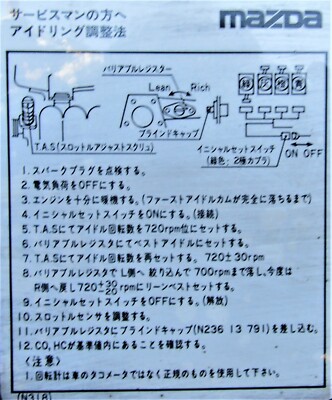 サービスマンの方へ
アイドリング調整法
mazda
バリアブルレジスター
Lean
Rich
ブラインドキャップ
T.A.S(スロットルアジャストスクリュ)
イニシャルセットスイッチ
(緑色:2極カプラ)
ON OFF
1.スパークプラグを点検する。
2.電気負荷をOFFにする。
3.エンジンを十分に暖機する。(ファーストアイドルカムが完全に落ちるまで)
4.イニシャルセットスイッチをONにする。(接続)
5.T.A.Sにてアイドル回転数を720rpm位にセットする。
6.バリアブルレジスタにてベストアイドルにセットする。
7.T.A.Sにてアイドル回転数を再セットする。720±30rpm
8.バリアブルレジスタでL側へ絞り込んで700rpmまで落し、今度は
R側へ戻し720±30/20rpmにリーンベストセットする。
9.イニシャルセットスイッチをOFFにする。(解放)
10.スロットルセンサを調整する。
11.バリアブルレジスタにブラインドキャップ(N236 13 791)を差し込む。
12.CO,HCが基準値内にあることを確認する。
〈注意〉
1.回転計は車のタコメータではなく正規のものを使用して下さい。
(N318)